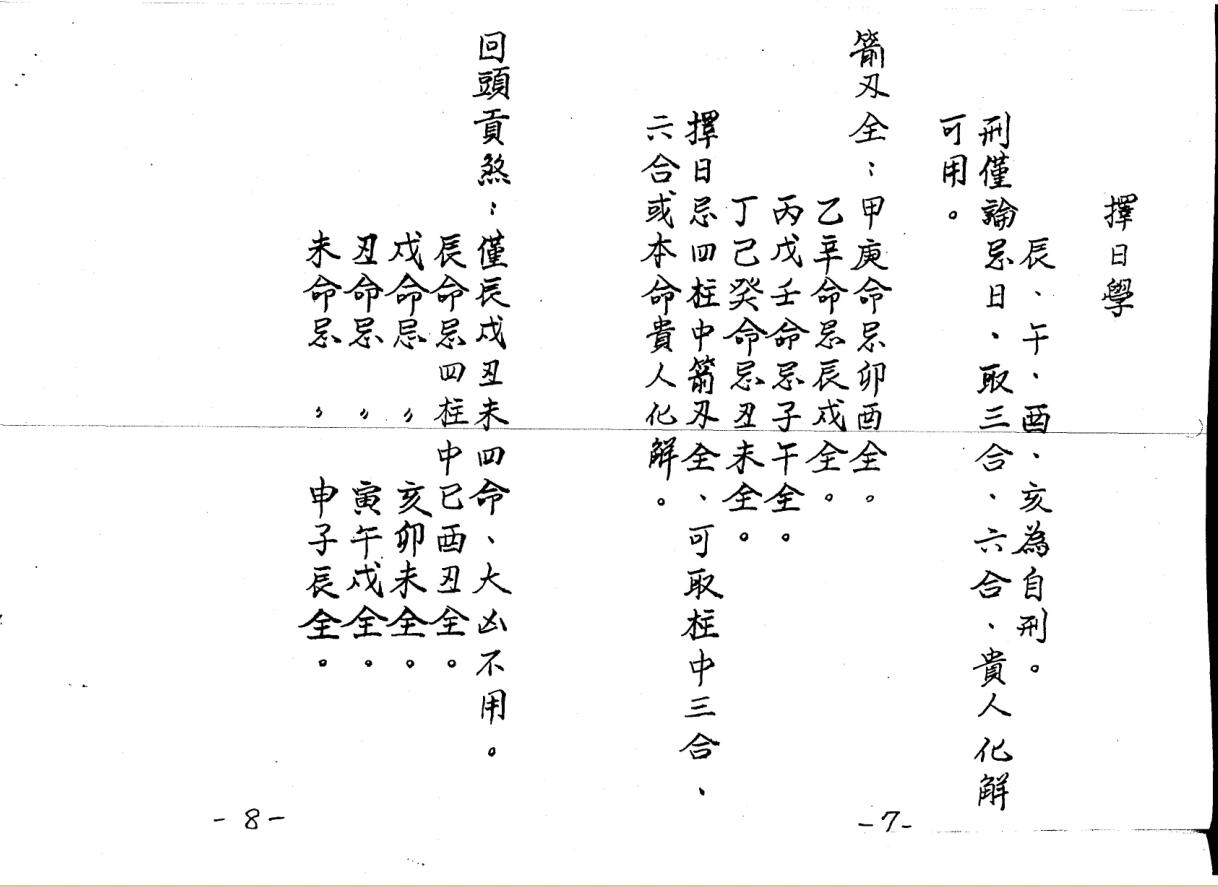 擇日學
辰、午、酉、亥為自刑。
刑僅論忌日、取三合、六合、貴人化解
可用。
箭刃全：甲庚命忌卯酉全。
乙辛命忌辰戌全。
丙戊壬命忌子午全。
丁己癸命忌丑未全。
擇日忌四柱中箭刃全、可取柱中三合、
六合或本命貴人化解。
-7-
回頭貢煞：僅辰戌丑未四命、大凶不用。
辰命忌四柱中巳酉丑全。
戌命忌〃亥卯未全。
丑命忌〃寅午戌全。
未命忌〃申子辰全。
-8-